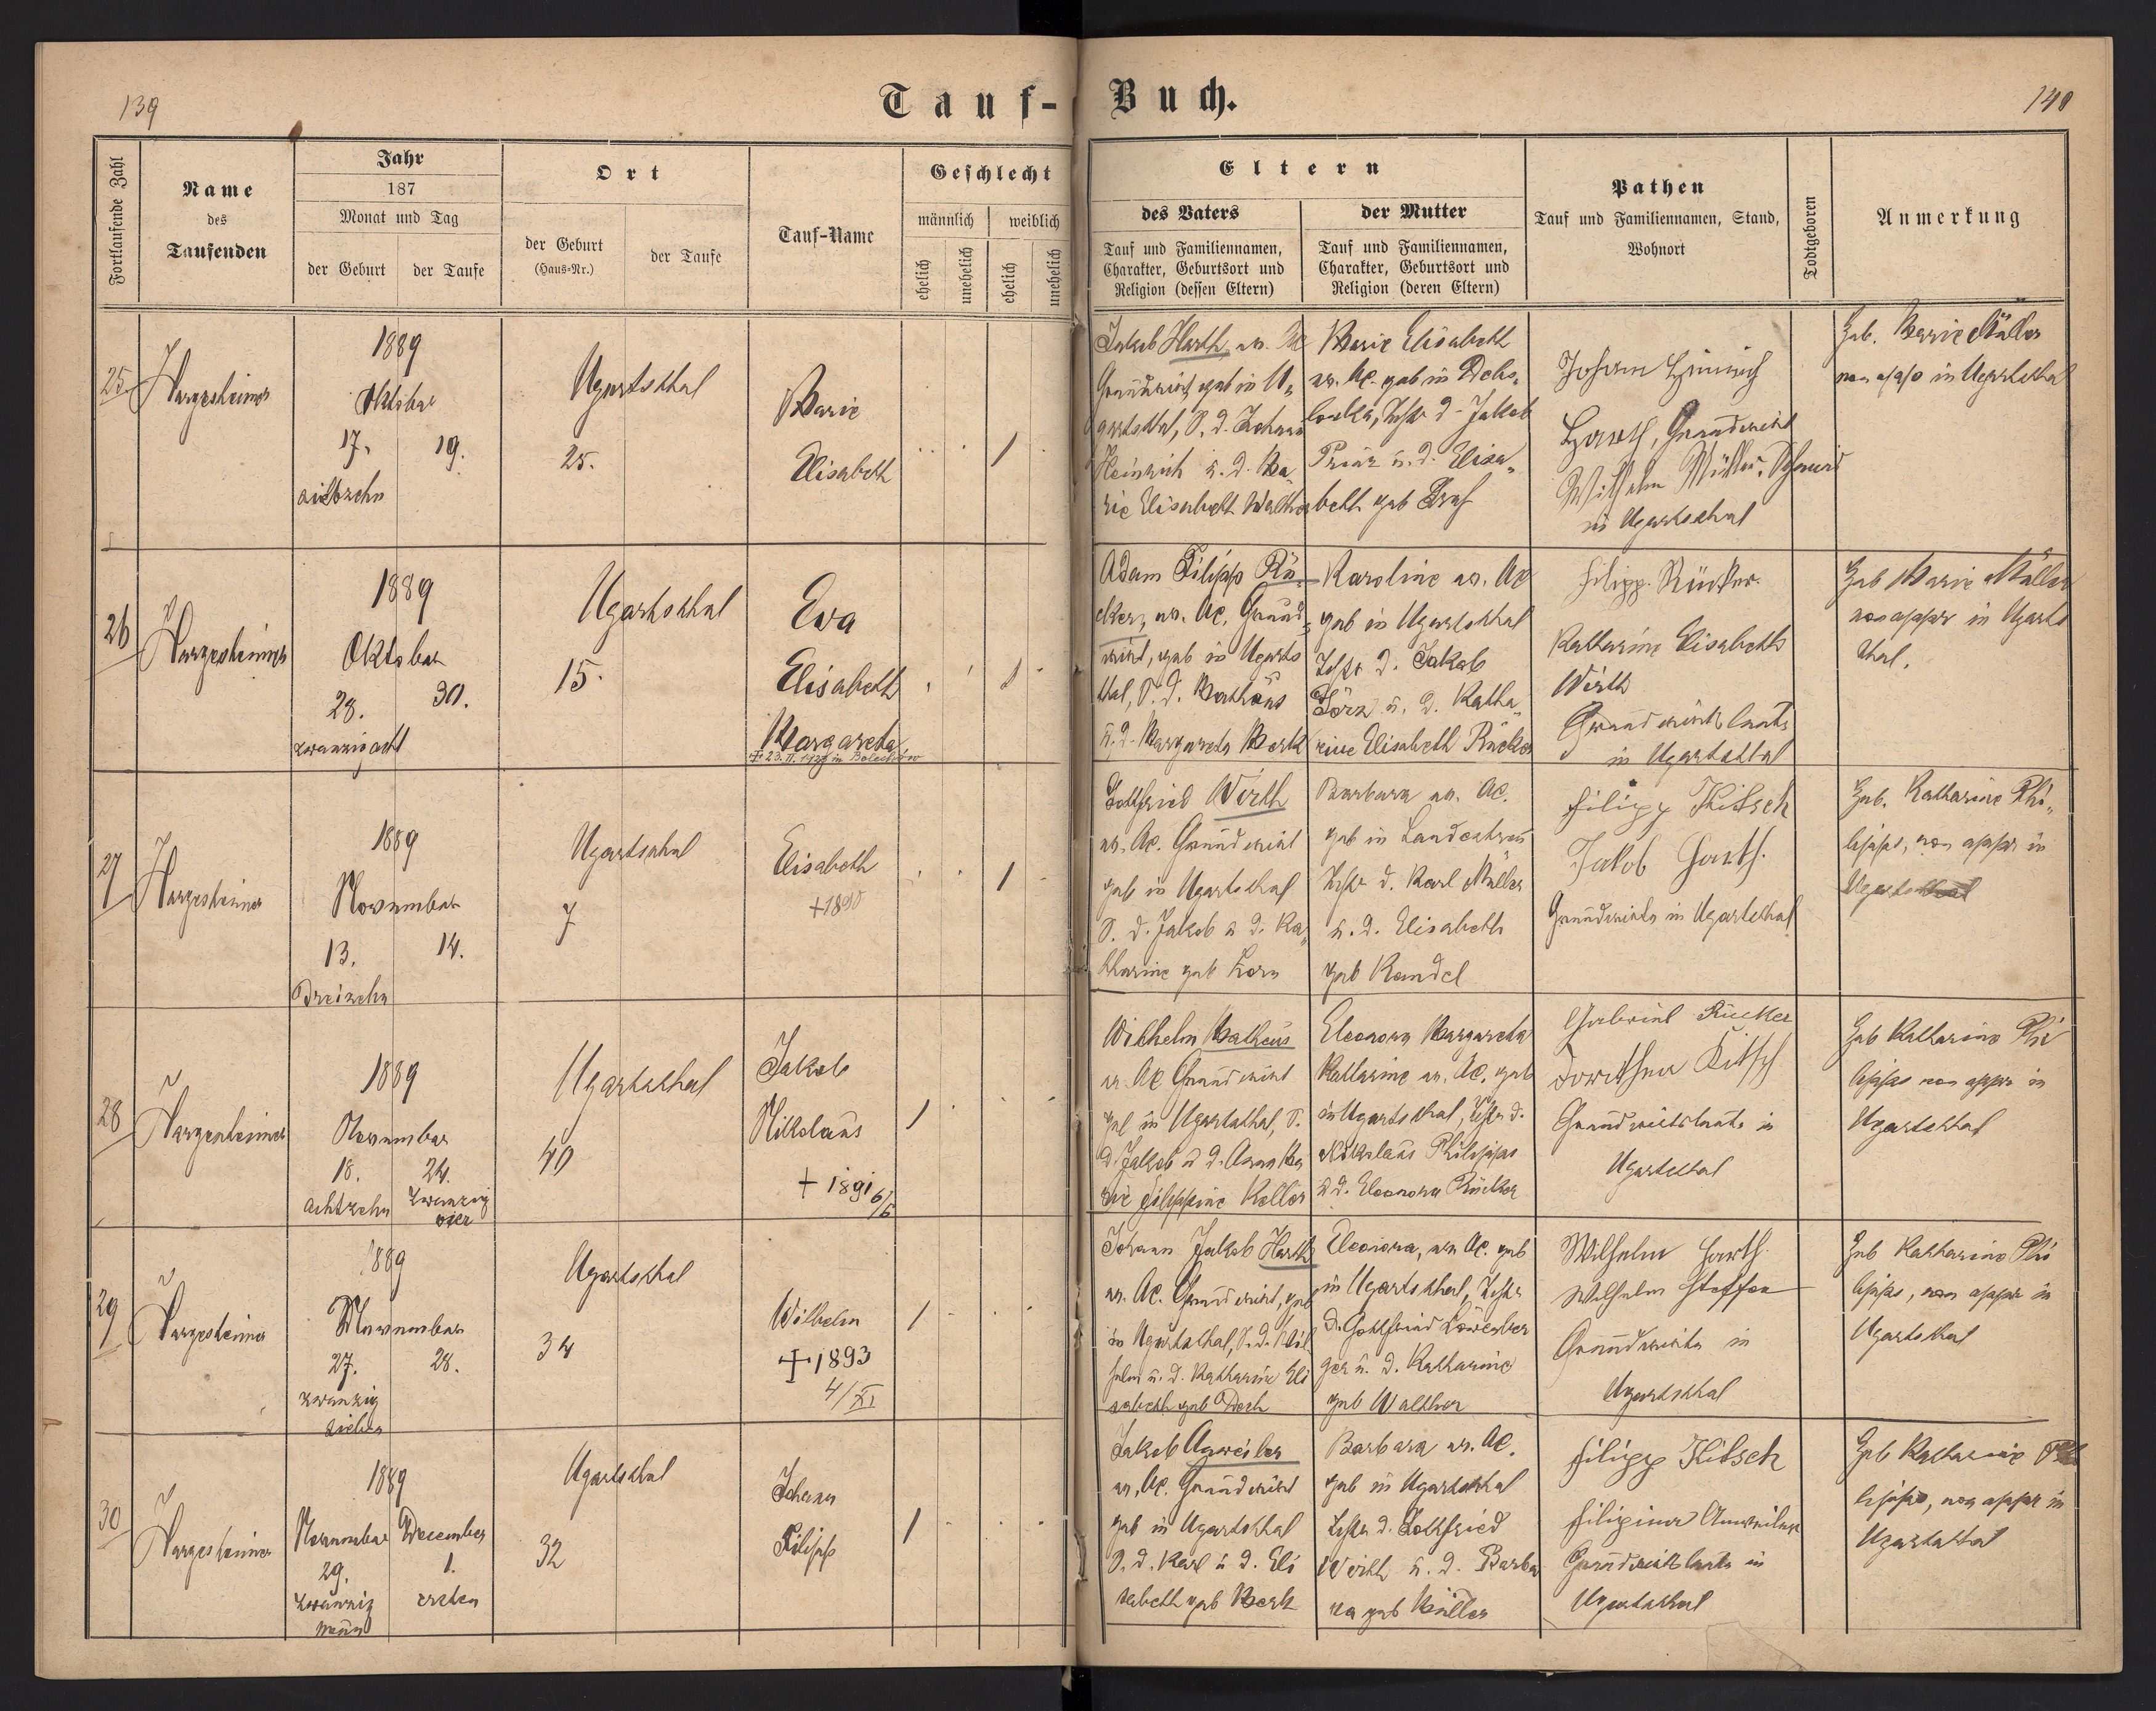 139
Tauf-Buch.
140
Fortlaufende Zahl
Name
des
Taufenden
Jahr
187
Monat und Tag
der Geburt
der Taufe
Ort
der Geburt
(Haus-Nr.)
der Taufe
Tauf-Name
Geschlecht
männlich
weiblich
ehelich
unehelich
ehelich
unehelich
Eltern
des Vaters
Tauf und Familiennamen,
Charakter, Geburtsort und
Religion (dessen Eltern)
der Mutter
Tauf und Familiennamen,
Charakter, Geburtsort und
Religion (deren Eltern)
Pathen
Tauf und Familiennamen, Stand,
Wohnort
Todtgeboren
Anmerkung
25
Hargesheimer
1889
Oktober
17.
19.
siebzehn
Ugartsthal
25.
Marie
Elisabeth
1
Jakob Harth
Grundwirt, geb in U-
gartsthal, S. d. Johann
Heinrich u. d. Ma
rie Elisabeth Walther
Marie Elisabeth
geb in
d. Jakob
Prinz u. d. Elisa-
beth geb Graf
Johann Heinrich
Harth, Grundwirt
Wilhelm Müller, Schmid
in Ugartsthal
Heb. Marie Müller
non app in Ugartsthal
26
Hargesheimer
1889
Oktober
28.
30.
zwanzig acht
Ugartsthal
15.
Eva
Elisabeth
Margareta
+ 23.II.1927 in Bolechów
1
Adam Filipp Rü-
cker, ev. AC. Grund-
wirt, geb in Ugarts
thal, S. d. Mathäus
u. d. Margareta Merk
Karoline ev. AC
geb in Ugartsthal
d. Jakob
Jörz u. d. Katha-
rine Elisabeth Rücker
Filipp Rücker
Katharine Elisabeth
Wirth
Grundwirtsleute
in Ugartsthal
Heb Marie Müller
non appr in Ugarts
thal.
27
Hargesheimer
1889
November
13.
14.
Dreizehn
Ugartsthal
7
Elisabeth
+1890
1
Gottfried Wirth
ev. AC. Grundwirt
geb in Ugartsthal
S. d. Jakob u d. Ka-
tharine geb Horn
Barbara ev. AC.
geb in Landestreu
d. Karl Müller
u. d. Elisabeth
geb Kandel
Filipp Kitsch
Jakob Harth.
Grundwirte in Ugartsthal
Heb. Katharine Phi-
lipps, non appr in
Ugartsthal
28
Hargesheimer
1889
November
18.
24.
achtzehn
zwanzig
vier
Ugartsthal
40
Jakob
Nikolaus
+ 1891 6/5
1
Wilhelm Matheus
ev. AC Grundwirt
geb in Ugartsthal, S.
d. Jakob u d. Anna Ma
rie Filippine Keller
Eleonora Margareta
Katharine ev. AC. geb
in Ugartsthal, d.
Nikolaus Philipps
u d. Eleonora Rücker
Gabriel Rücker
Dorothea Kitsch
Grundwirtsleute in
Ugartsthal
Heb Katharine Phi
lipps non appr in
Ugartsthal
29
Hargesheimer
1889
November
27.
28.
zwanzig
sieben
Ugartsthal
34
Wilhelm
+ 1893
4/XI
1
Johann Jakob Harth
ev. AC. Grundwirt, geb
in Ugartsthal, S. d. Wil
helm u. d. Katharine Eli
sabeth geb Desh
Eleonora, ev. AC. geb
in Ugartsthal,
d. Gottfried Löwenber
ger u. d. Katharine
geb Walther
Wilhelm Harth.
Wilhelm Steffen
Grundwirte in
Ugartsthal
Heb Katharine Phi
lipps, non appr in
Ugartsthal
30
Hargesheimer
1889
November
December
29.
1.
zwanzig
ersten
neun
Ugartsthal
32
Johann
Filipp
1
Jakob Anweiler
ev. AC. Grundwirt
geb in Ugartsthal
S. d. Karl u d. Eli
sabeth geb Merk
Barbara ev. AC.
geb in Ugartsthal
d. Gottfried
Wirth u. d. Barba
ra geb Müller
Filipp Kitsch
Filipine Anweiler
Grundwirtsleute in
Ugartsthal
Heb Katharine Phi
lipps, non appr in
Ugartsthal